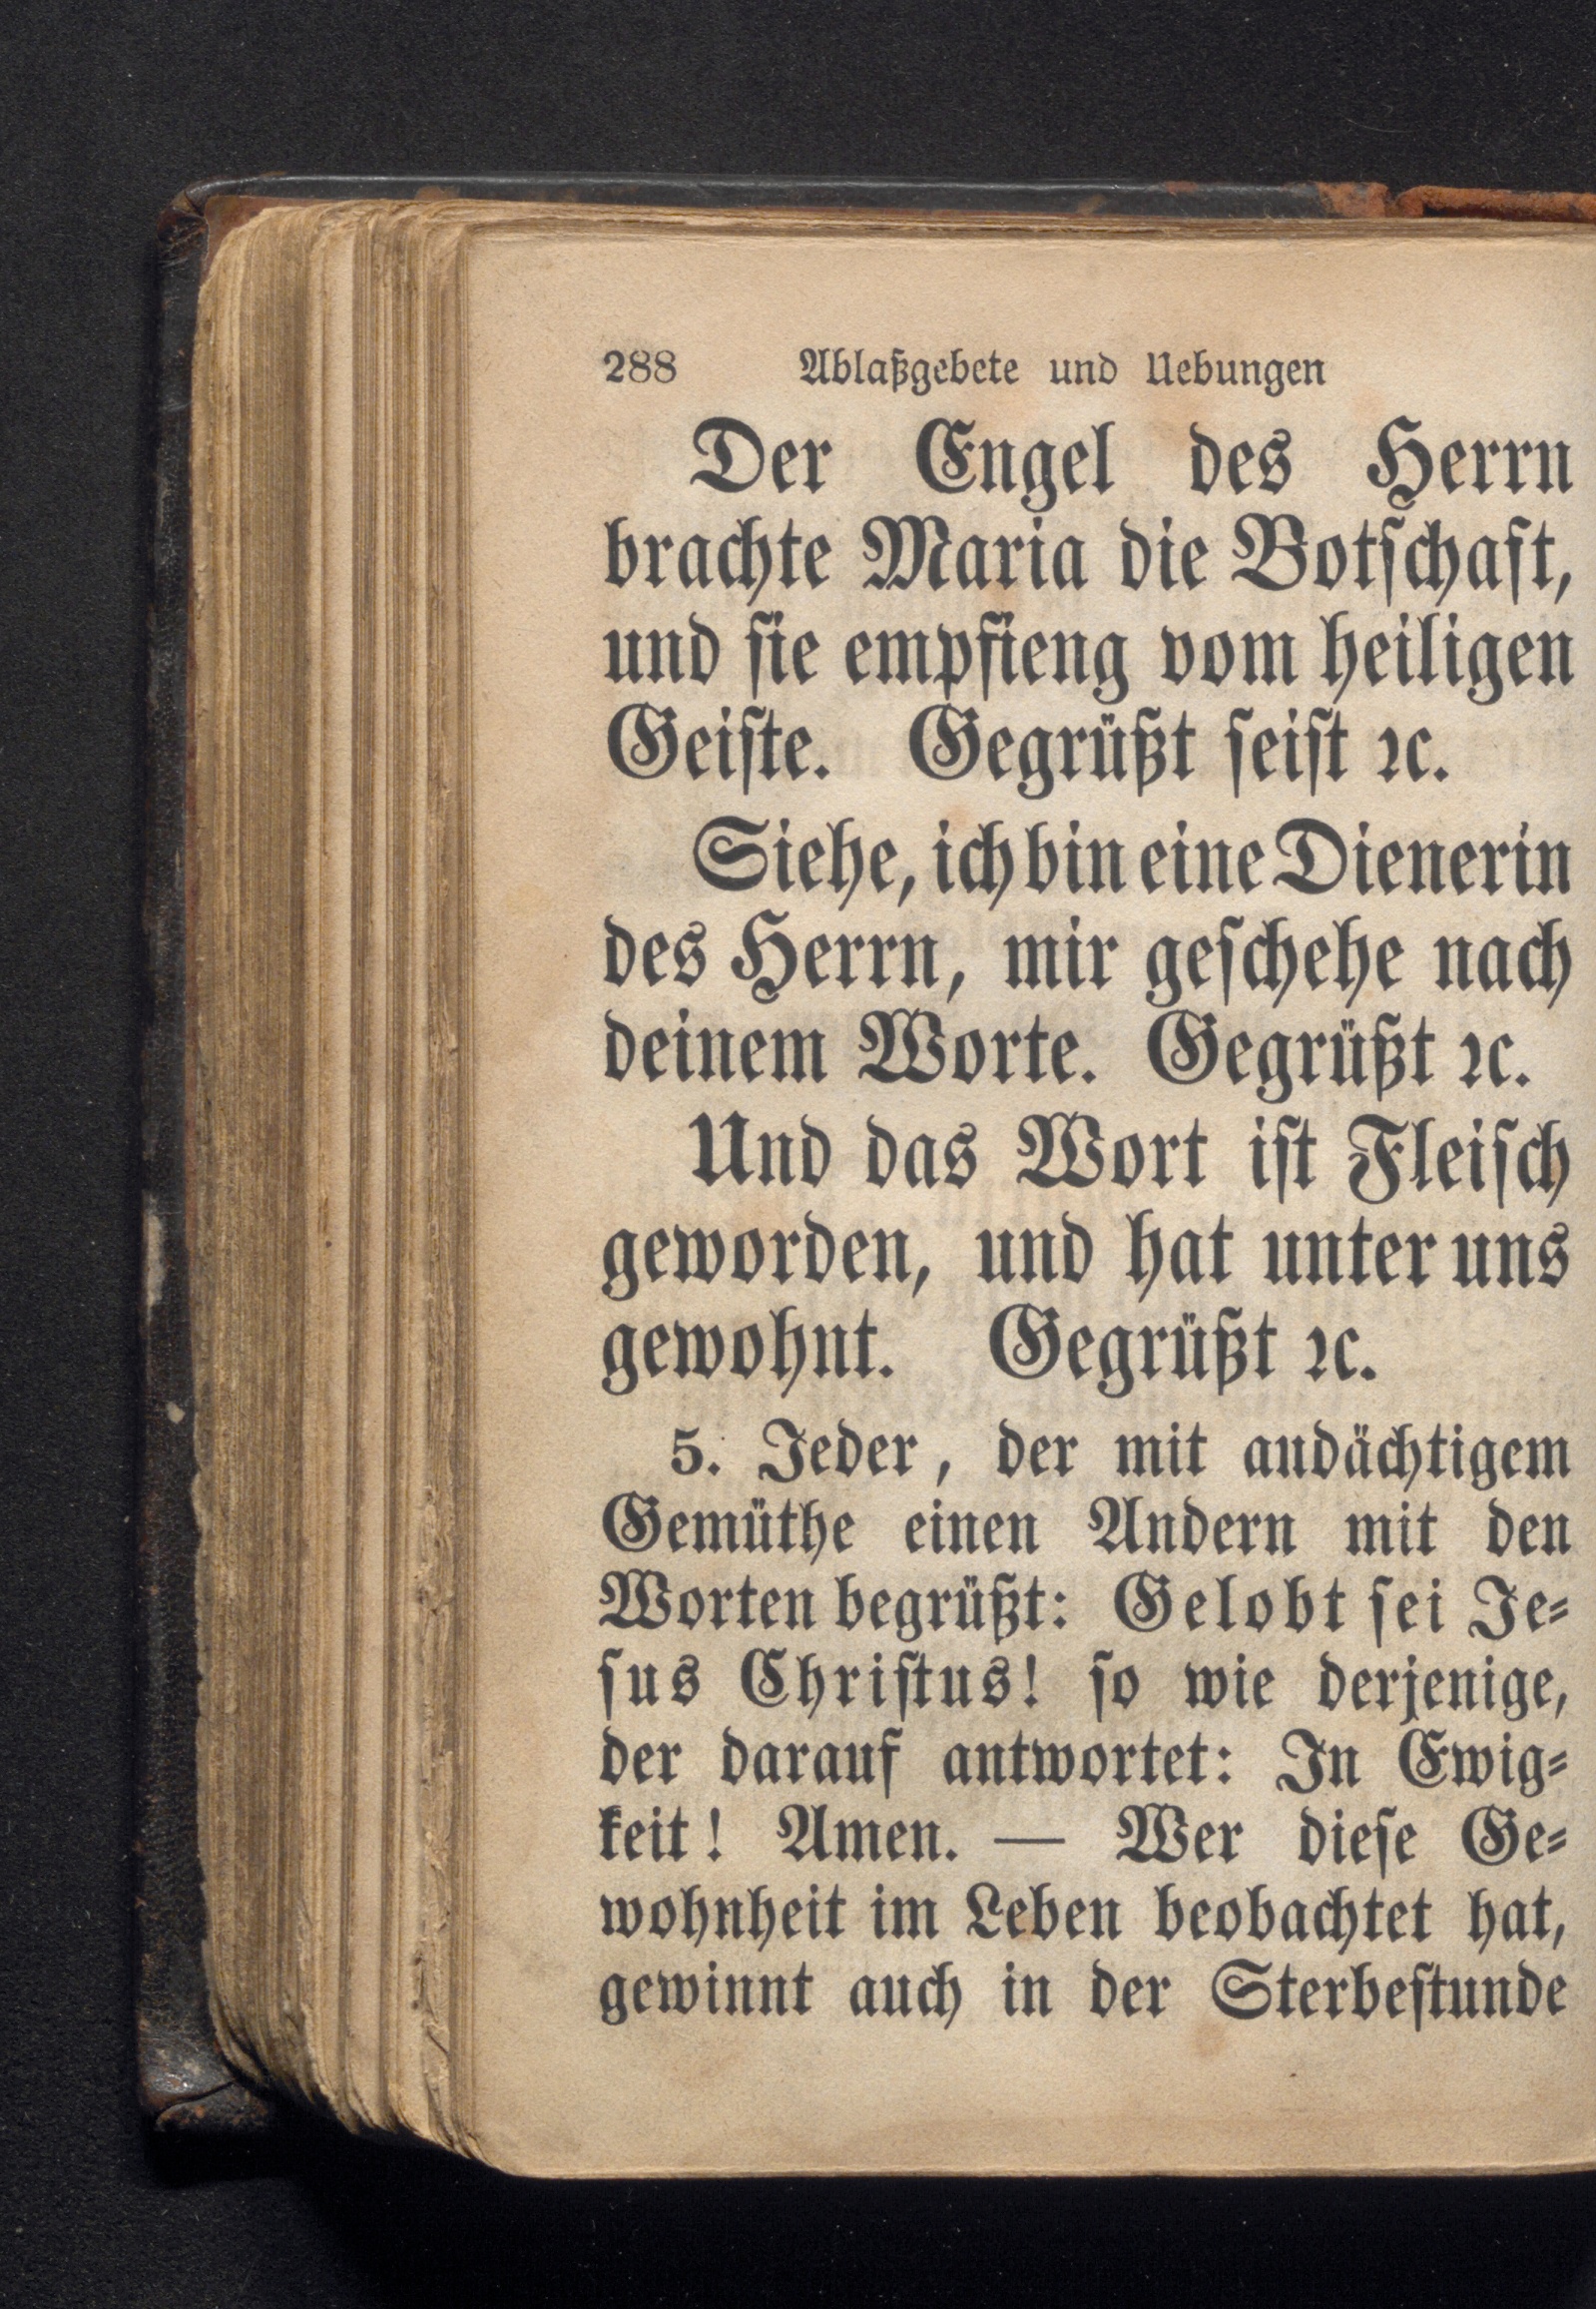 288 Ablaßgebete und Uebungen
Der Engel des Herrn
brachte Maria die Botſchaft,
und ſie empfieng vom heiligen
Geiſte. Gegrüßt ſeiſt ꝛc.
Siehe, ich bin eine Dienerin
des Herrn, mir geſchehe nach
deinem Worte. Gegrüßt ꝛc.
Und das Wort iſt Fleiſch
geworden, und hat unter uns
gewohnt. Gegrüßt ꝛc.
5. Jeder, der mit andächtigem
Gemüthe einen Andern mit den
Worten begrüßt: Gelobt ſei Je⸗
ſus Chriſtus! ſo wie derjenige,
der darauf antwortet: In Ewig⸗
keit! Amen. — Wer dieſe Ge⸗
wohnheit im Leben beobachtet hat,
gewinnt auch in der Sterbeſtunde